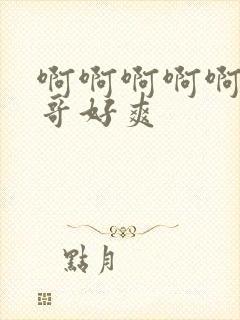 啊啊啊啊啊
哥好爽
點月